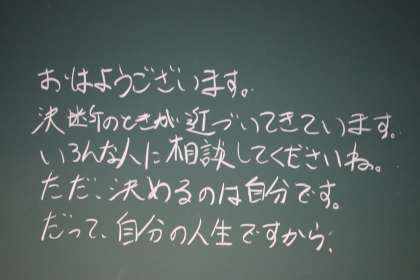 おはようございます。
決断のときが近づいてきています。
いろんな人に相談してくださいね。
ただ、決めるのは自分です。
だって、自分の人生ですから。